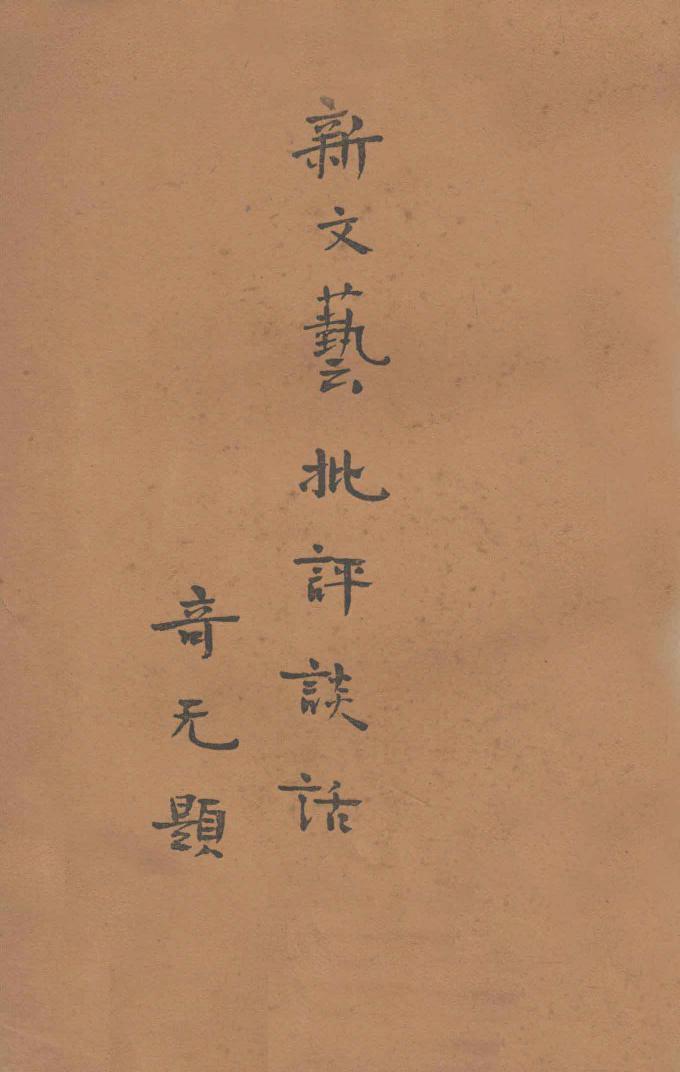 新文藝批評談話
奇无題